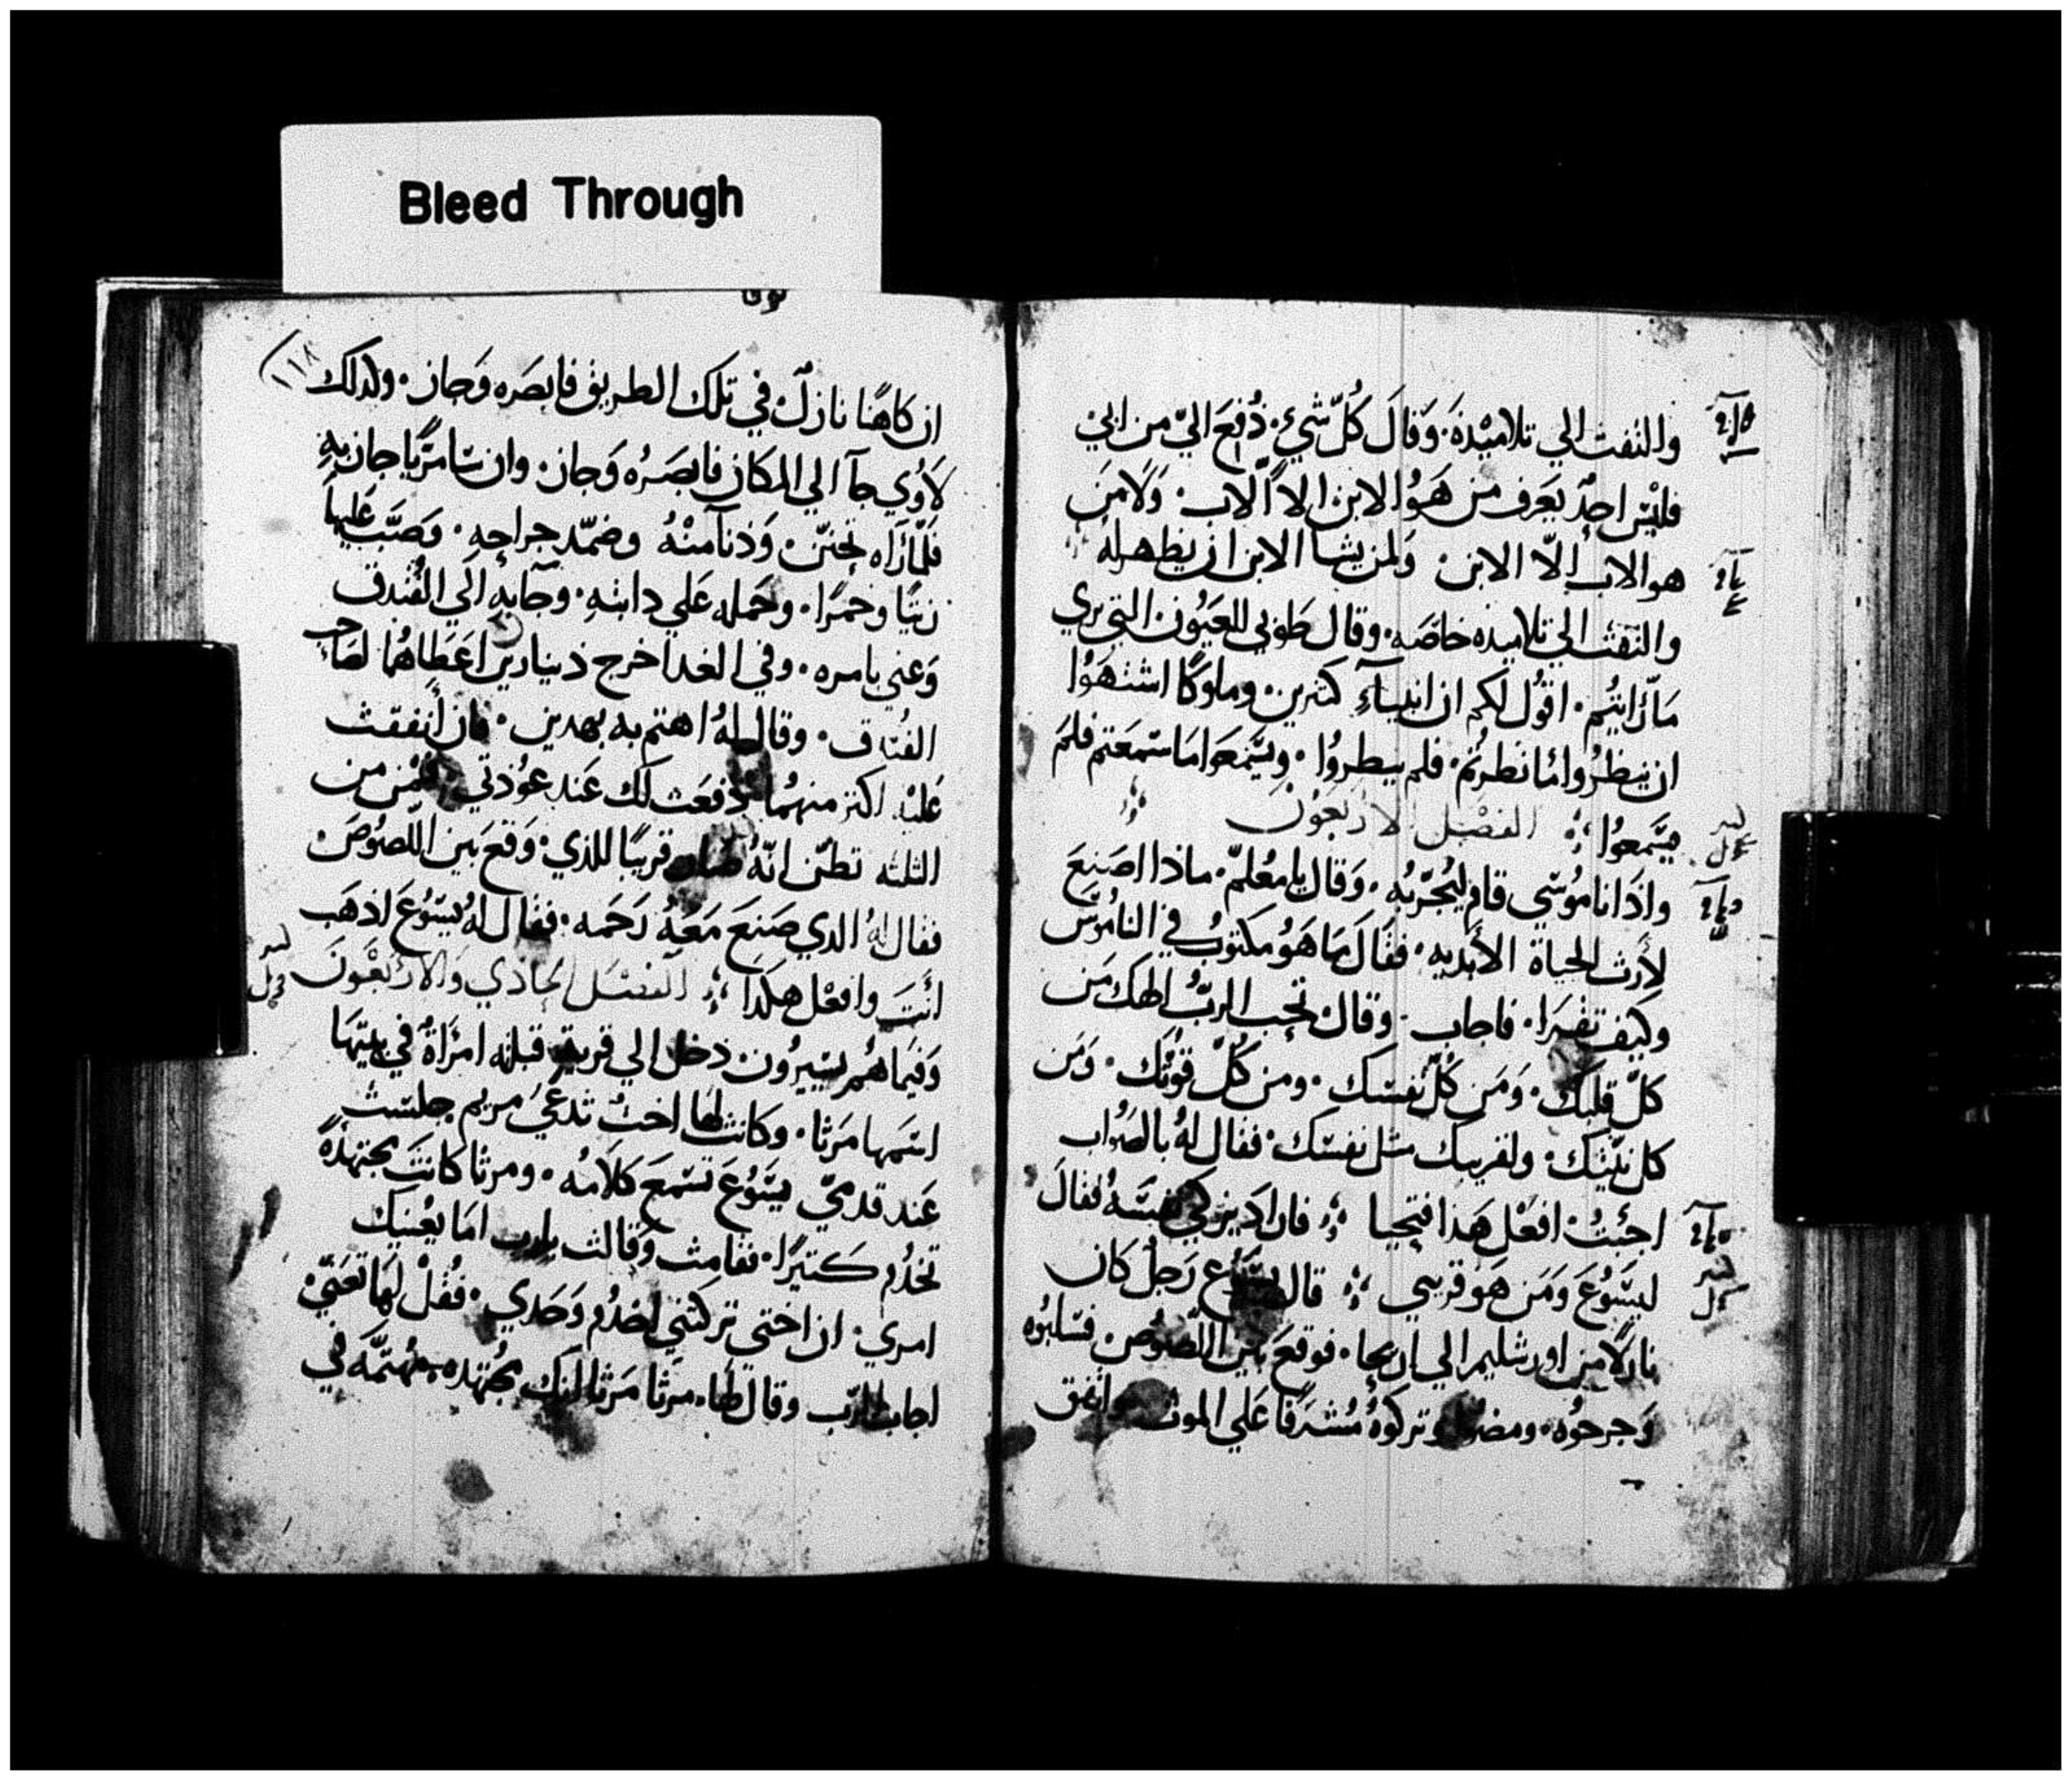 Bleed Through
والتفت الي تلاميذه. وَقالَ كُلّ شيء. دُفعَ اليّ من ابي
فليْس احدٌ يَعَرف من هَوُ الابن الا اَلاب. وَلَا مَن
هو الاب إلّا الابن وَلمن يشا الابن ان يظهر له
والتفت الي تلاميذه خاصَه. وقال طَوبي للعَيُون التي تري
مَا رَاَيتُم. اقوُل لكم ان انبيآءِ كتيرين. وملوكًا اشتهَوُا
ان ينظرُوا ما نظرتُم. فلم ينظروُا. ويسَّمعَوا ما سَمعَتم فلمَ
يسَّمعوُا الفصْل الاربَعوُن
واذَا ناموُسي قام ليُجرّبُه. وَقال يا مُعُلمّ. ماذا اصَنعَ
لأرث الحياة الأبَديه. فقَالَ مَا هَوُ مكتوُبٌ في الناموُسَ
وكيف تقرَا. فاجاب. وقال تحَب الربُّ الهك مَن
كلّ قلبك. وَمَن كُلّ نفسَك. ومن كُلّ قوُتك. وَمَن
كل نيّتك. ولقريبك مثل نفسَك. فقال لهُ بالصَوُاب
اجَبتُ. افعَل هَذا فتحيا فاراد يزكي نفسَهُ فقالَ
ليسَوُعَ وَمَن هَو قريبي قال يسَوُع رَجلٌ كان
نازلًا من اورشليم الي اريحا. فوقعَ بَين اللصُوُص. فسَلبوُه
وَجرحوُه. ومضوا وتركوُهُ مُشرَفًا عَلي الموت. واتفق
لوقا
١١٨
ان كاهَنًا نازلٌ في تلك الطريق فابصَره وَجاز. وكذلك
لاَوُي جآ الي المكان فابصَرُه وَجاز. وان سَامَريًّا جاز بهِ
فَلمَّا رَاَه تحننّ. وَدنا منهُ وضمّد جراحهِ. وَصَبّ عَليها
زيتًا وخمرًا. وحَمله عَلي دابتهِ. وجآبهِ الَي الفُندق
وَعني بامره. وفي الغد اخرج دينارين اعَطاهُما لصَاحب
الفُندق. وقال لهُ اهتم به بهدين. فان أنفقت
عَليْه اكتر منهمُا دفعَت لك عَند عوُدتي فمَن من
الثلثه تظنّ انهُ صار قريبًا للذي. وَقعَ بَين اللّصوُصَ
فقال لهُ الدي صَنعَ مَعَهُ رَحَمه. فقال لهُ يسَوُعَ اذهَب
انتَ وافعْل هكذَا الفصَل الحادي وَالارَبعَوُنَ
وَفيمَا هُم يسَيرُون. دخل الي قريه قبلته امرَاةٌ في بيتهَا
اسَمَها مَرَثا. وكانت لها اختٌ تدعَيُ مريم جلسَت
عَند قدميّ يسَوُعَ تسَمعَ كلَامُه. ومرثا كانتَ مجتهدةً
تخدُم كتيرًا. فقامت وَقالت يارب امَا يعُنيك
امري. ان اختي تركتني اخدُم وَحَدي. فقُلْ لهَا تعَنّي
اجاب الرّب وقال لها. مرَثا مَرَثا انك مجُتهده. مُهتمّه في